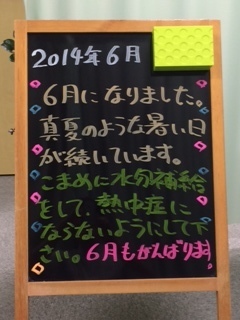 2014年6月
6月になりました。
真夏のような暑い日
が続いています。
こまめに水分補給
をして、熱中症に
ならないようにして下
さい。6月もがんばります